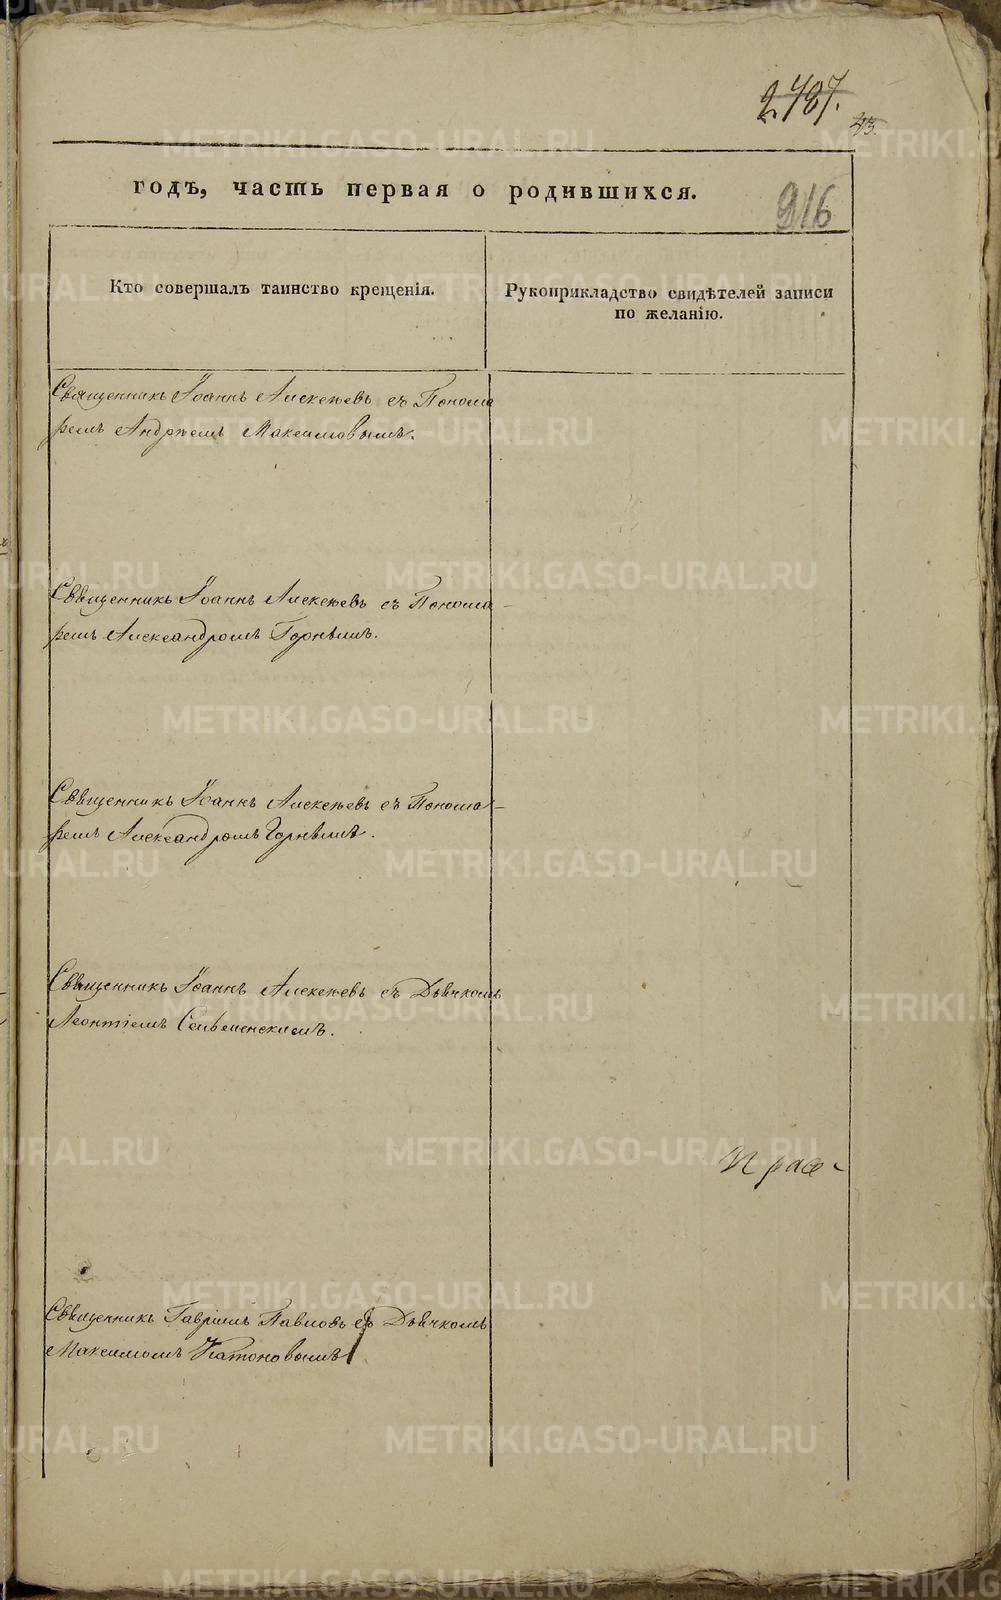 2,787.
43.
годъ, часть первая о родившихся.
916
Кто совершалъ таинство крещенія.
Рукоприкладство свидѣтелей записи
по желанію.
Священникъ Іоаннъ Алексѣевъ съ Понома
ремъ Андрѣемъ Максимовымъ.
Священникъ Іоаннъ Алексѣевъ съ Понома-
ремъ Александромъ Горнымъ.
Священникъ Іоаннъ Алексѣевъ съ Понома-
ремъ Александромъ Горнымъ.
Священникъ Іоаннъ Алексѣевъ съ Дьячкомъ
Леонтіемъ
Священникъ Гавріилъ Павловъ съ Дьячкомъ
Максимомъ Платоновымъ
METRIKI.GASO-URAL.RU